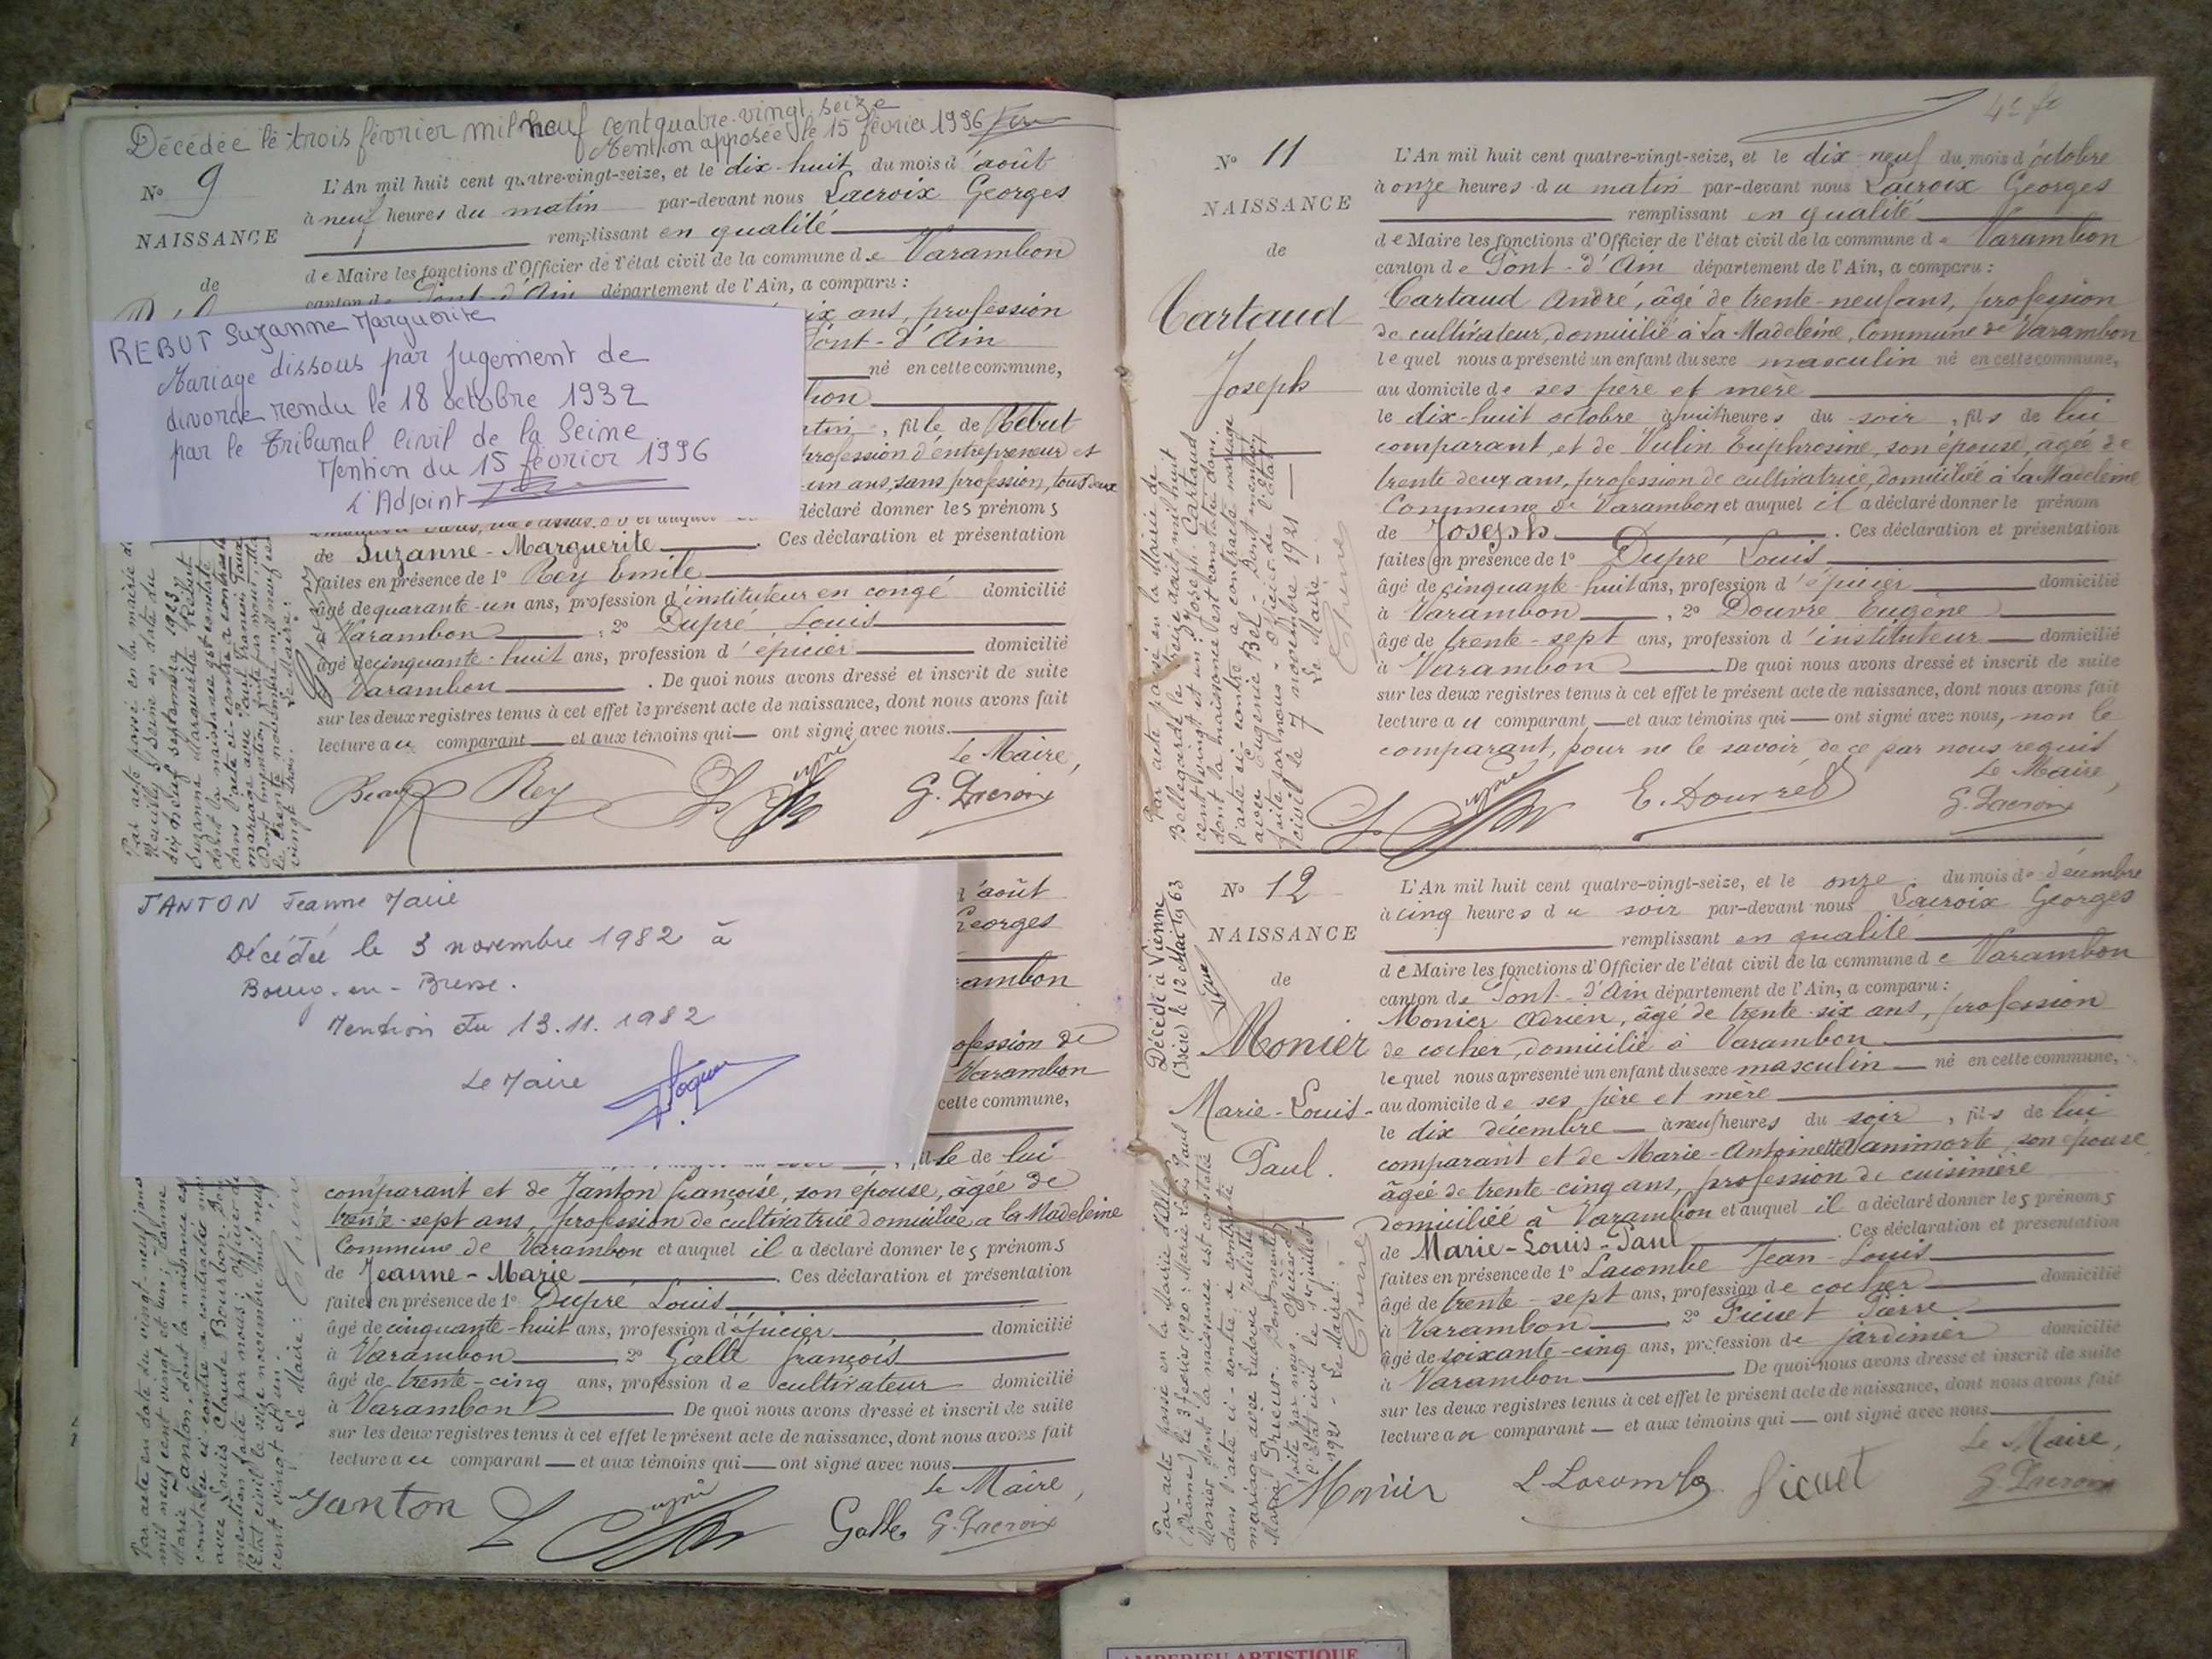 Décédée le trois février mil neuf cent quatre-vingt seize
Mention apposée le 15 février 1996
N° 9
NAISSANCE
de
L'An mil huit cent quatre-vingt-seize, et le dix-huit du mois d'août
à neuf heures du matin par-devant nous Lacroix Georges
remplissant en qualité
de Maire les fonctions d'Officier de l'état civil de la commune de Varambon
canton de Pont-d'Ain département de l'Ain, a comparu :
ix ans, profession
Pont-d'Ain
né en cette commune,
REBUT Suzanne Marguerite
Mariage dissous par jugement de
divorce rendu le 18 octobre 1932
par le Tribunal Civil de la Seine
Mention du 15 février 1996
L'Adjoint
atin, fille de Rebut
profession d'entrepreneur et
un ans, sans profession, tous deux
déclaré donner les prénoms
de Suzanne-Marguerite. Ces déclaration et présentation
faites en présence de 1° Rey Emile
âgé de quarante-un ans, profession d'instituteur en congé domicilié
à Varambon, 2° Dupré Louis
âgé de cinquante-huit ans, profession d'épicier domicilié
à Varambon. De quoi nous avons dressé et inscrit de suite
sur les deux registres tenus à cet effet le présent acte de naissance, dont nous avons fait
lecture au comparant et aux témoins qui ont signé avec nous.
Le Maire,
Rey G. Lacroix
Par acte passé en la mairie de
Neuilly s/Seine en date du
dix neuf septembre 1923,
Suzanne Marguerite Rebut
dont la naissance est constatée
dans l'acte ci-contre a contracté
mariage avec
vingt trois. Le Maire :
JANTON Jeanne Marie
Décédée le 3 novembre 1982 à
Bourg-en-Bresse.
Mention du 13.11.1982
Le Maire
d'août
Georges
rambon
ofession de
Varambon
cette commune,
fille de lui
comparant et de Janton Françoise, son épouse, âgée de
trente-sept ans, profession de cultivatrice domiciliée à la Madeleine
Commune de Varambon et auquel il a déclaré donner les prénoms
de Jeanne-Marie. Ces déclaration et présentation
faites en présence de 1° Dupré Louis
âgé de cinquante-huit ans, profession d'épicier domicilié
à Varambon 2° Galle françois
âgé de trente-cinq ans, profession de cultivateur domicilié
à Varambon De quoi nous avons dressé et inscrit de suite
sur les deux registres tenus à cet effet le présent acte de naissance, dont nous avons fait
lecture au comparant et aux témoins qui ont signé avec nous
Le Maire,
Janton Galle G. Lacroix
Par acte en date du vingt-neuf juin
mil neuf cent vingt et un, Jeanne
Marie Janton, dont la naissance est
constatée ci-contre a contracté
avec Louis Claude Bourbon. Dont
mention faite par nous, Officier de
l'Etat civil le seize novembre mil neuf
cent vingt et un. Le Maire :
N° 11
NAISSANCE
de
Cartaud
Joseph
L'An mil huit cent quatre-vingt-seize, et le dix-neuf du mois d'octobre
à onze heures du matin par-devant nous Lacroix Georges
remplissant en qualité
de Maire les fonctions d'Officier de l'état civil de la commune de Varambon
canton de Pont-d'Ain département de l'Ain, a comparu :
Cartaud André, âgé de trente-neuf ans, profession
de cultivateur, domicilié à La Madeleine, Commune de Varambon
lequel nous a présenté un enfant du sexe masculin né en cette commune,
au domicile de ses père et mère
le dix-huit octobre à huit heures du soir, fils de lui
comparant, et de Vulin Euphrosine, son épouse, âgée de
trente deux ans, profession de cultivatrice, domiciliée à La Madeleine
Commune de Varambon et auquel il a déclaré donner le prénom
de Joseph. Ces déclaration et présentation
faites en présence de 1° Dupré Louis
âgé de cinquante-huit ans, profession d'épicier domicilié
à Varambon, 2° Douvre Eugène
âgé de trente-sept ans, profession d'instituteur domicilié
à Varambon De quoi nous avons dressé et inscrit de suite
sur les deux registres tenus à cet effet le présent acte de naissance, dont nous avons fait
lecture au comparant et aux témoins qui ont signé avec nous, non le
comparant, pour ne le savoir de ce par nous requis
Le Maire,
E. Douvre G. Lacroix
Par acte passé en la Mairie de
Bellegarde le treize août mil neuf
cent vingt et un, Joseph Cartaud
dont la naissance est constatée dans
l'acte ci-contre a contracté mariage
avec Eugénie Bel. Dont mention
faite par nous Officier de l'état
civil le 7 novembre 1921
Le Maire
N° 12
NAISSANCE
de
Monier
Marie-Louis-
Paul.
Décédé à Vienne
(Isère) le 12 Mai 1963
L'An mil huit cent quatre-vingt-seize, et le onze du mois de décembre
à cinq heures du soir par-devant nous Lacroix Georges
remplissant en qualité
de Maire les fonctions d'Officier de l'état civil de la commune de Varambon
canton de Pont-d'Ain département de l'Ain, a comparu :
Monier Adrien, âgé de trente-six ans, profession
de cocher, domicilié à Varambon
lequel nous a présenté un enfant du sexe masculin né en cette commune,
au domicile de ses père et mère
le dix décembre à neuf heures du soir, fils de lui
comparant et de Marie-Antoinette son épouse
âgée de trente-cinq ans, profession de cuisinière
domiciliée à Varambon et auquel il a déclaré donner les prénoms
de Marie-Louis-Paul. Ces déclaration et présentation
faites en présence de 1° Lacombe Jean-Louis
âgé de trente-sept ans, profession de cocher domicilié
à Varambon, 2° Picuet Pierre
âgé de soixante-cinq ans, profession de jardinier domicilié
à Varambon De quoi nous avons dressé et inscrit de suite
sur les deux registres tenus à cet effet le présent acte de naissance, dont nous avons fait
lecture au comparant et aux témoins qui ont signé avec nous
Le Maire,
Monier L. Lacombe Picuet G. Lacroix
Par acte passé en la Mairie
(Drôme) le 3 février 1920 : Marie Louis Paul
Monier dont la naissance est constatée
dans l'acte ci-contre a contracté
mariage avec
1921 - Le Maire :
AMPERIEU ARTISTIQUE